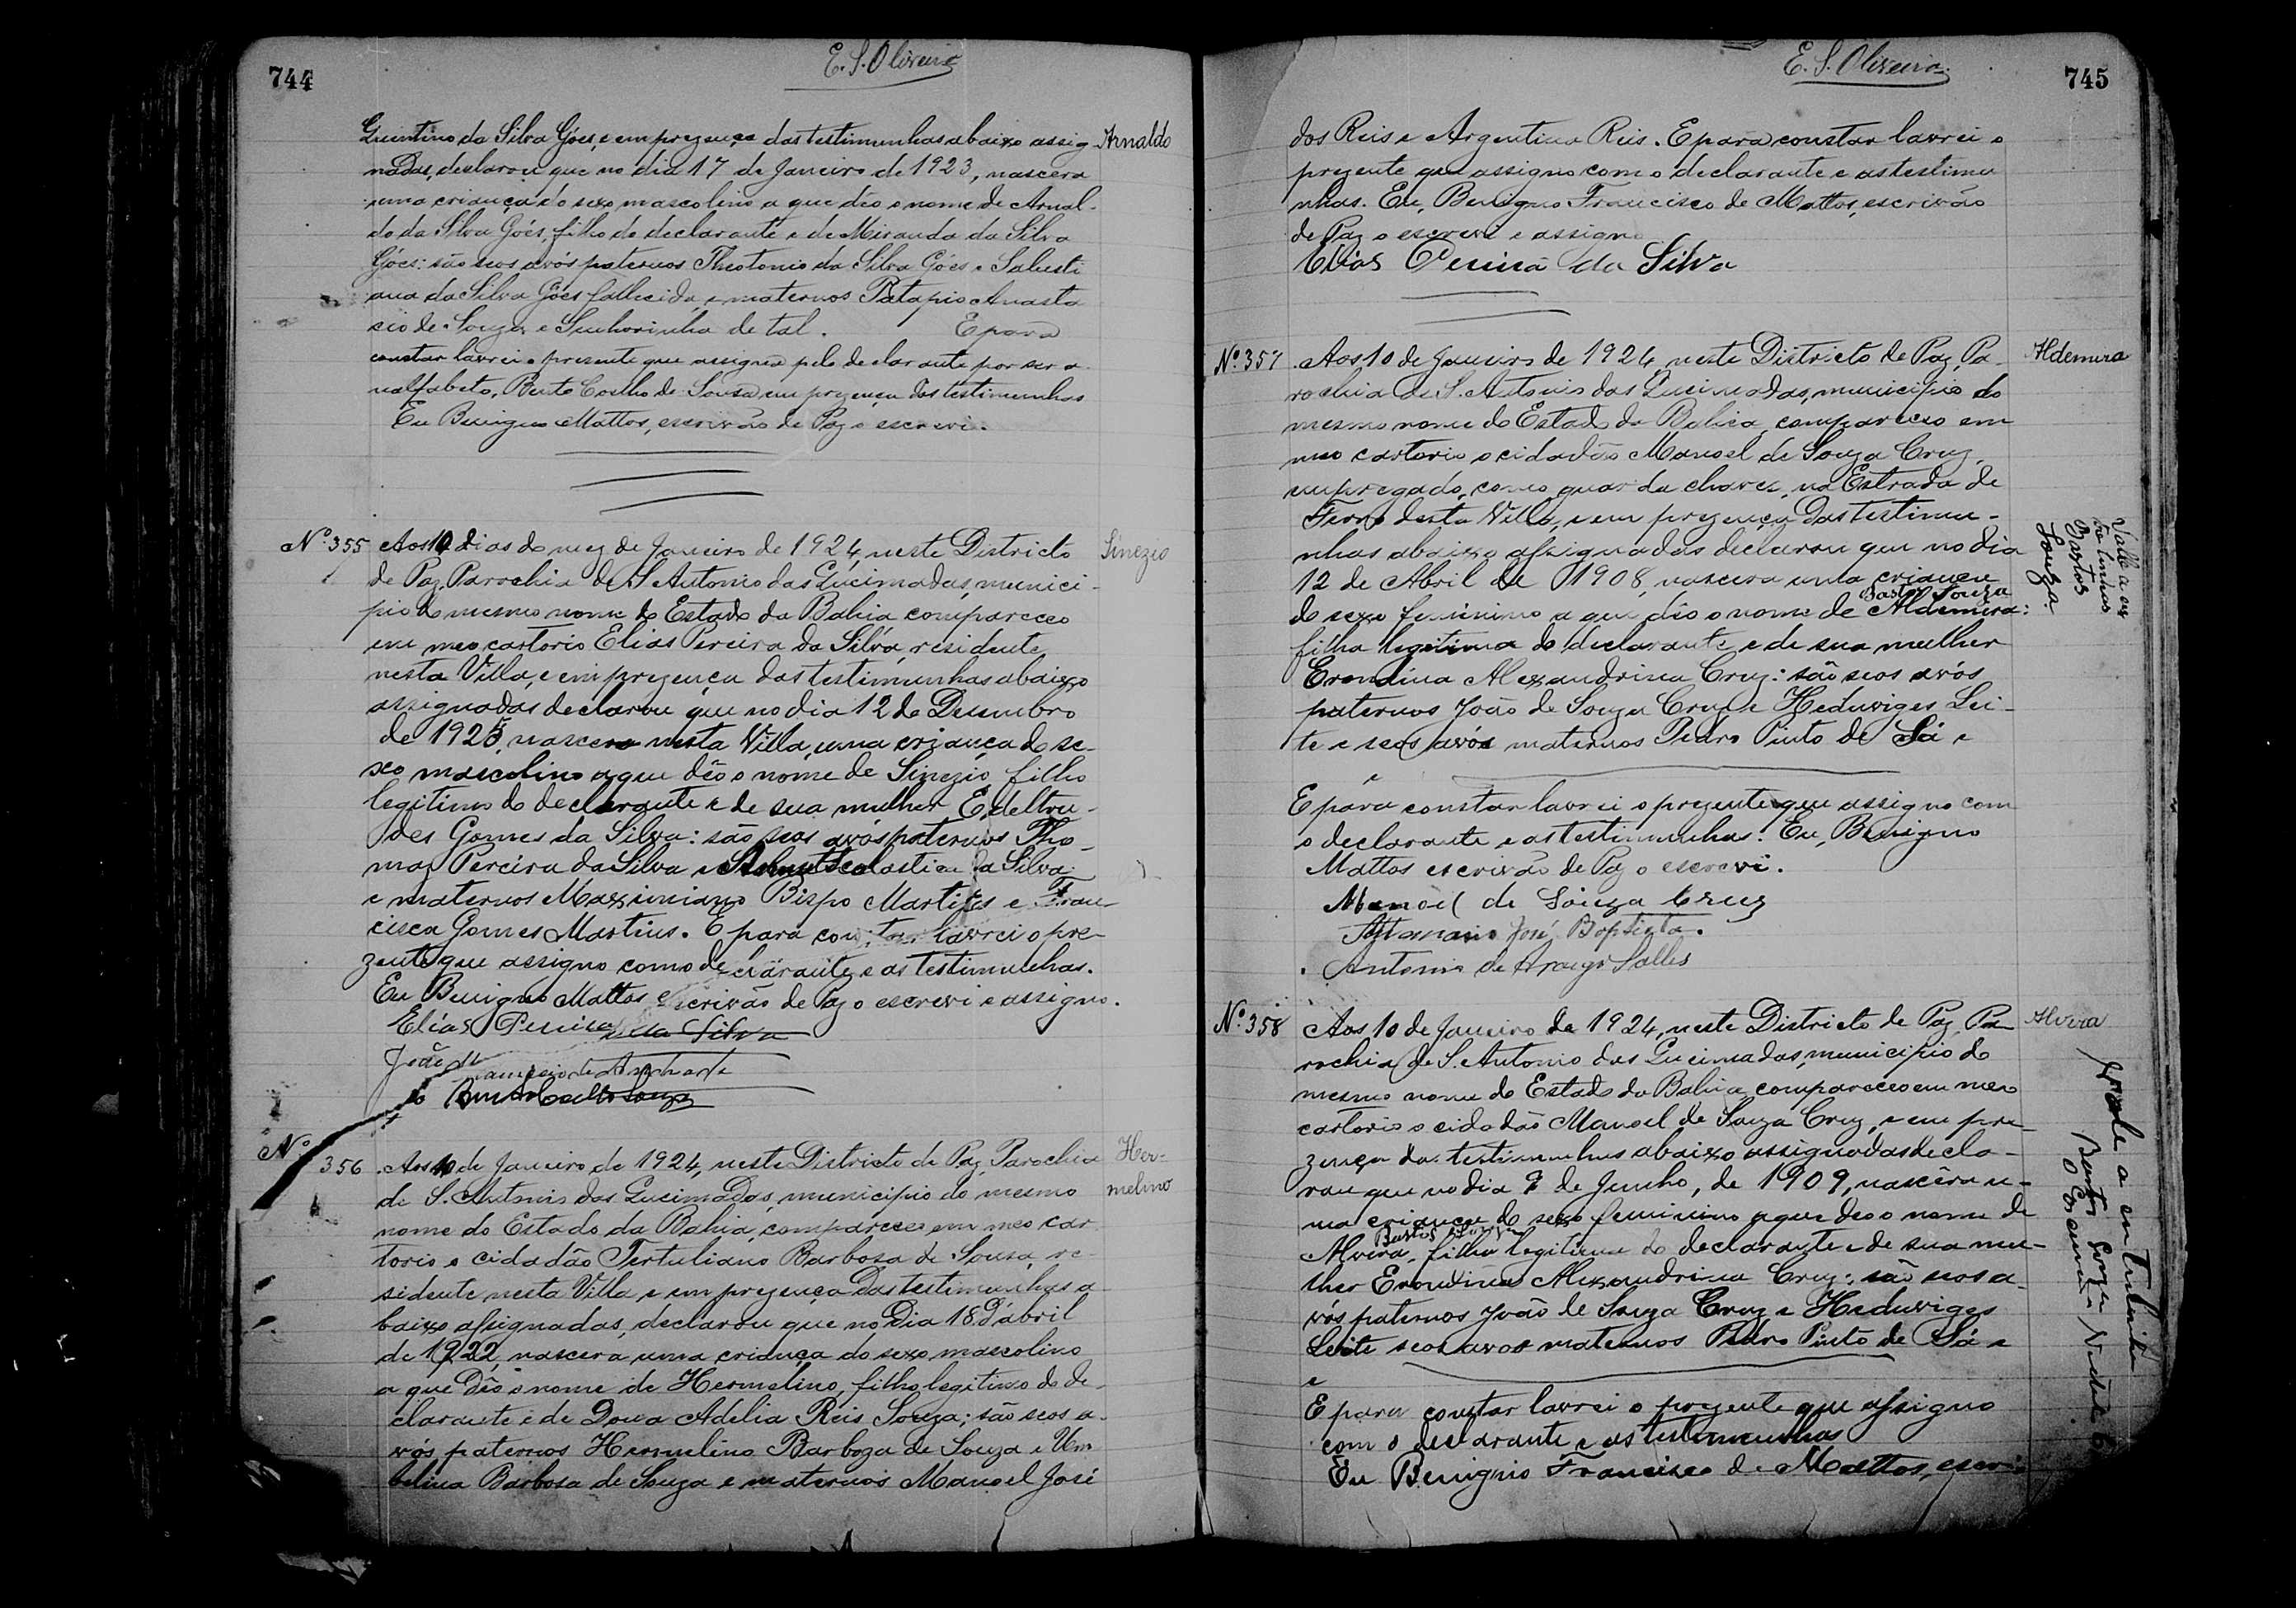 744
E. S. Oliveira
Quintino da Silva Góes, e em prezença das testimunhas abaixo assig
Arnaldo
nadas, declarou que no dia 17 de Janeiro de 1923, nascera
uma criança do sexo mascolino a que dêo o nome de Arnal-
do da Silva Góes, filho do declarante e de Miranda da Silva
Góes: são seos avós paternos Theotonio da Silva Góes e Salusti
ana da Silva Góes fallecida, e maternos Patapio Anasta
cio de Souza e Senhorinha de tal. E para
constar lavrei o presente que assigna pelo declarante por ser a-
nalfabeto, Bento Coelho de Sousa em prezença das testimunhas
Eu Benigno Mattos, escrivão de Paz o escrevi.
Nº 355
Aos 10 dias do mez de Janeiro de 1924, neste Districto
Sinezio
de Paz, Parochia de S. Antonio das Queimadas, munici-
pio do mesmo nome do Estado da Bahia compareceo
em meo cartorio Elias Pereira da Silva, residente
nesta Villa, e em prezença das testimunhas abaixo
assignadas declarou que no dia 12 de Desembro
de 1923, nascera nesta Villa, uma criança do se-
xo mascolino a que dêo o nome de Sinezio, filho
legitimo do declarante e de sua mulher Edeltru-
des Gomes da Silva: são seos avós paternos Tho-
maz Pereira da Silva e Scolastica da Silva
e maternos Maximiano Bispo Martins e Fran-
cisca Gomes Martins. E para constar lavrei o pre-
zente que assigno com o declarante e as testimunhas.
Eu Benigno Mattos escrivão de Paz o escrevi e assigno.
Elias Pereira da Silva
João
Bento Coelho Souza
Nº 356
Aos 10 de Janeiro de 1924, neste Districto de Paz, Parochia
Her-
de S. Antonio das Queimadas, municipio do mesmo
melino
nome do Estado da Bahia, compareceo em meo car
torio o cidadão Tertuliano Barbosa de Sousa, re-
sidente nesta Villa e em prezença das testimunhas a
baixo assignadas, declarou que no Dia 18 d'abril
de 1922, nascera uma criança do sexo mascolino
a que dêo o nome de Hermelino, filho legitimo do de-
clarante e de Dona Adelia Reis Souza; são seos a-
vós paternos Hermelino Barboza de Souza e Um
belina Barbosa de Souza e maternos Manoel José
745
E. S. Oliveira
dos Reis e Argentina Reis. E para constar lavrei o
prezente que assigno com o declarante e as testimu
nhas. Eu, Benigno Francisco de Mattos, escrivão
de Paz o escrevi e assigno
Elias Pereira da Silva
Nº 357
Aos 10 de Janeiro de 1924, neste Districto de Paz, Pa-
Aldemira
rochia de S. Antonio das Queimadas, municipio do
mesmo nome do Estado da Bahia, compareceo em
meo cartorio o cidadão Manoel de Souza Cruz,
empregado, como guarda chaves, na Estrada de
Ferro desta Villa, e em prezença das testimu-
nhas abaixo assignadas declarou que no dia
12 de Abril de 1908, nascera uma criança
Bastos Souza
do sexo feminino a que dêo o nome de Aldemira:
filha legitima do declarante e de sua mulher
Erondina Alexandrina Cruz: são seos avós
paternos João de Souza Cruz e Heduviges Lei-
te e seos avós maternos Pedro Pinto de Sá e
e
E para constar lavrei o prezente que assigno com
o declarante e as testimunhas. Eu, Benigno
Mattos escrivão de Paz o escrevi.
Manoel de Souza Cruz
Athanasio José Baptista.
Antonio de Araujo Salles
Valle a en
trelinhas
Bastos
Souza
Nº 358
Aos 10 de Janeiro de 1924, neste Districto de Paz, Pa-
Alvira
rochia de S. Antonio das Queimadas, municipio do
mesmo nome do Estado da Bahia, compareceo em meo
cartorio o cidadão Manoel de Souza Cruz, e em pre-
zença das testimunhas abaixo assignadas decla-
rou que no dia 9 de Junho, de 1909, nascêra u-
ma criança do sexo feminino a que dêo o nome de
Bastos Souza
Alvira, filha legitima do declarante e de sua mu-
lher Erondina Alexandrina Cruz: são seos a-
vós paternos João de Souza Cruz e Heduviges
Leite seos avos maternos Pedro Pinto de Sá e
e
E para constar lavrei o prezente que assigno
com o declarante e as testimunhas
Eu Benigno Francisco de Mattos, escri-
Vale a entrelinha
Bastos Souza